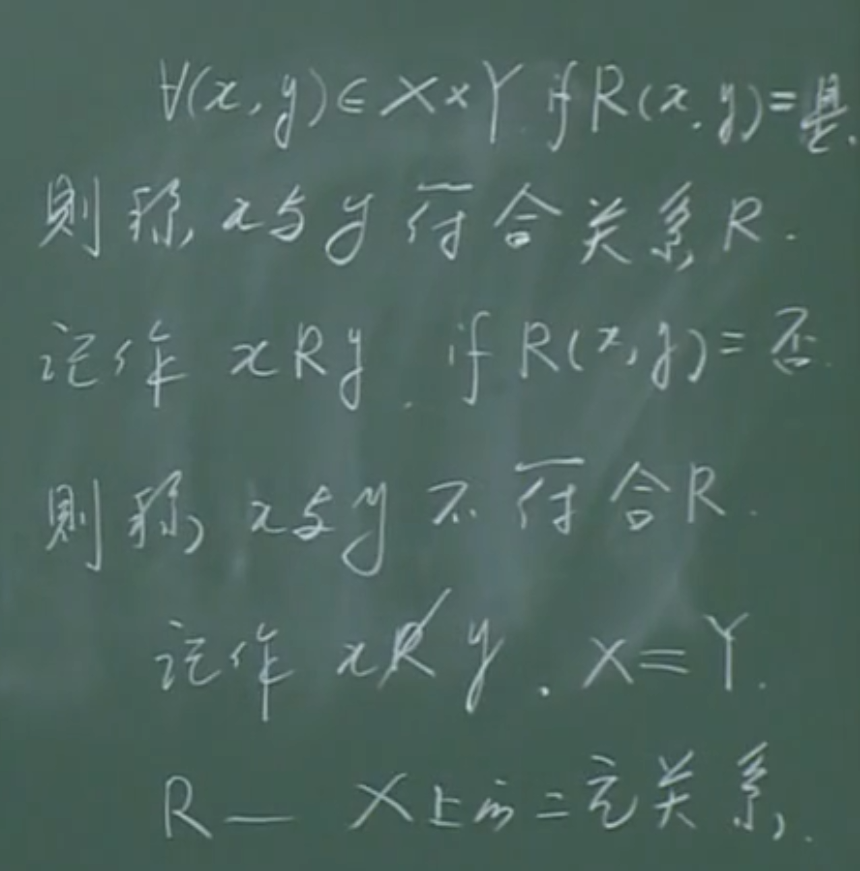 ∀(x,y)∈X×Y if R(x,y)=是.
则称 x与y 符合关系R.
记作 xRy. if R(x,y)=否.
则称 x与y 不符合R.
记作 xR̸y. X=Y.
R— X上的二元关系.